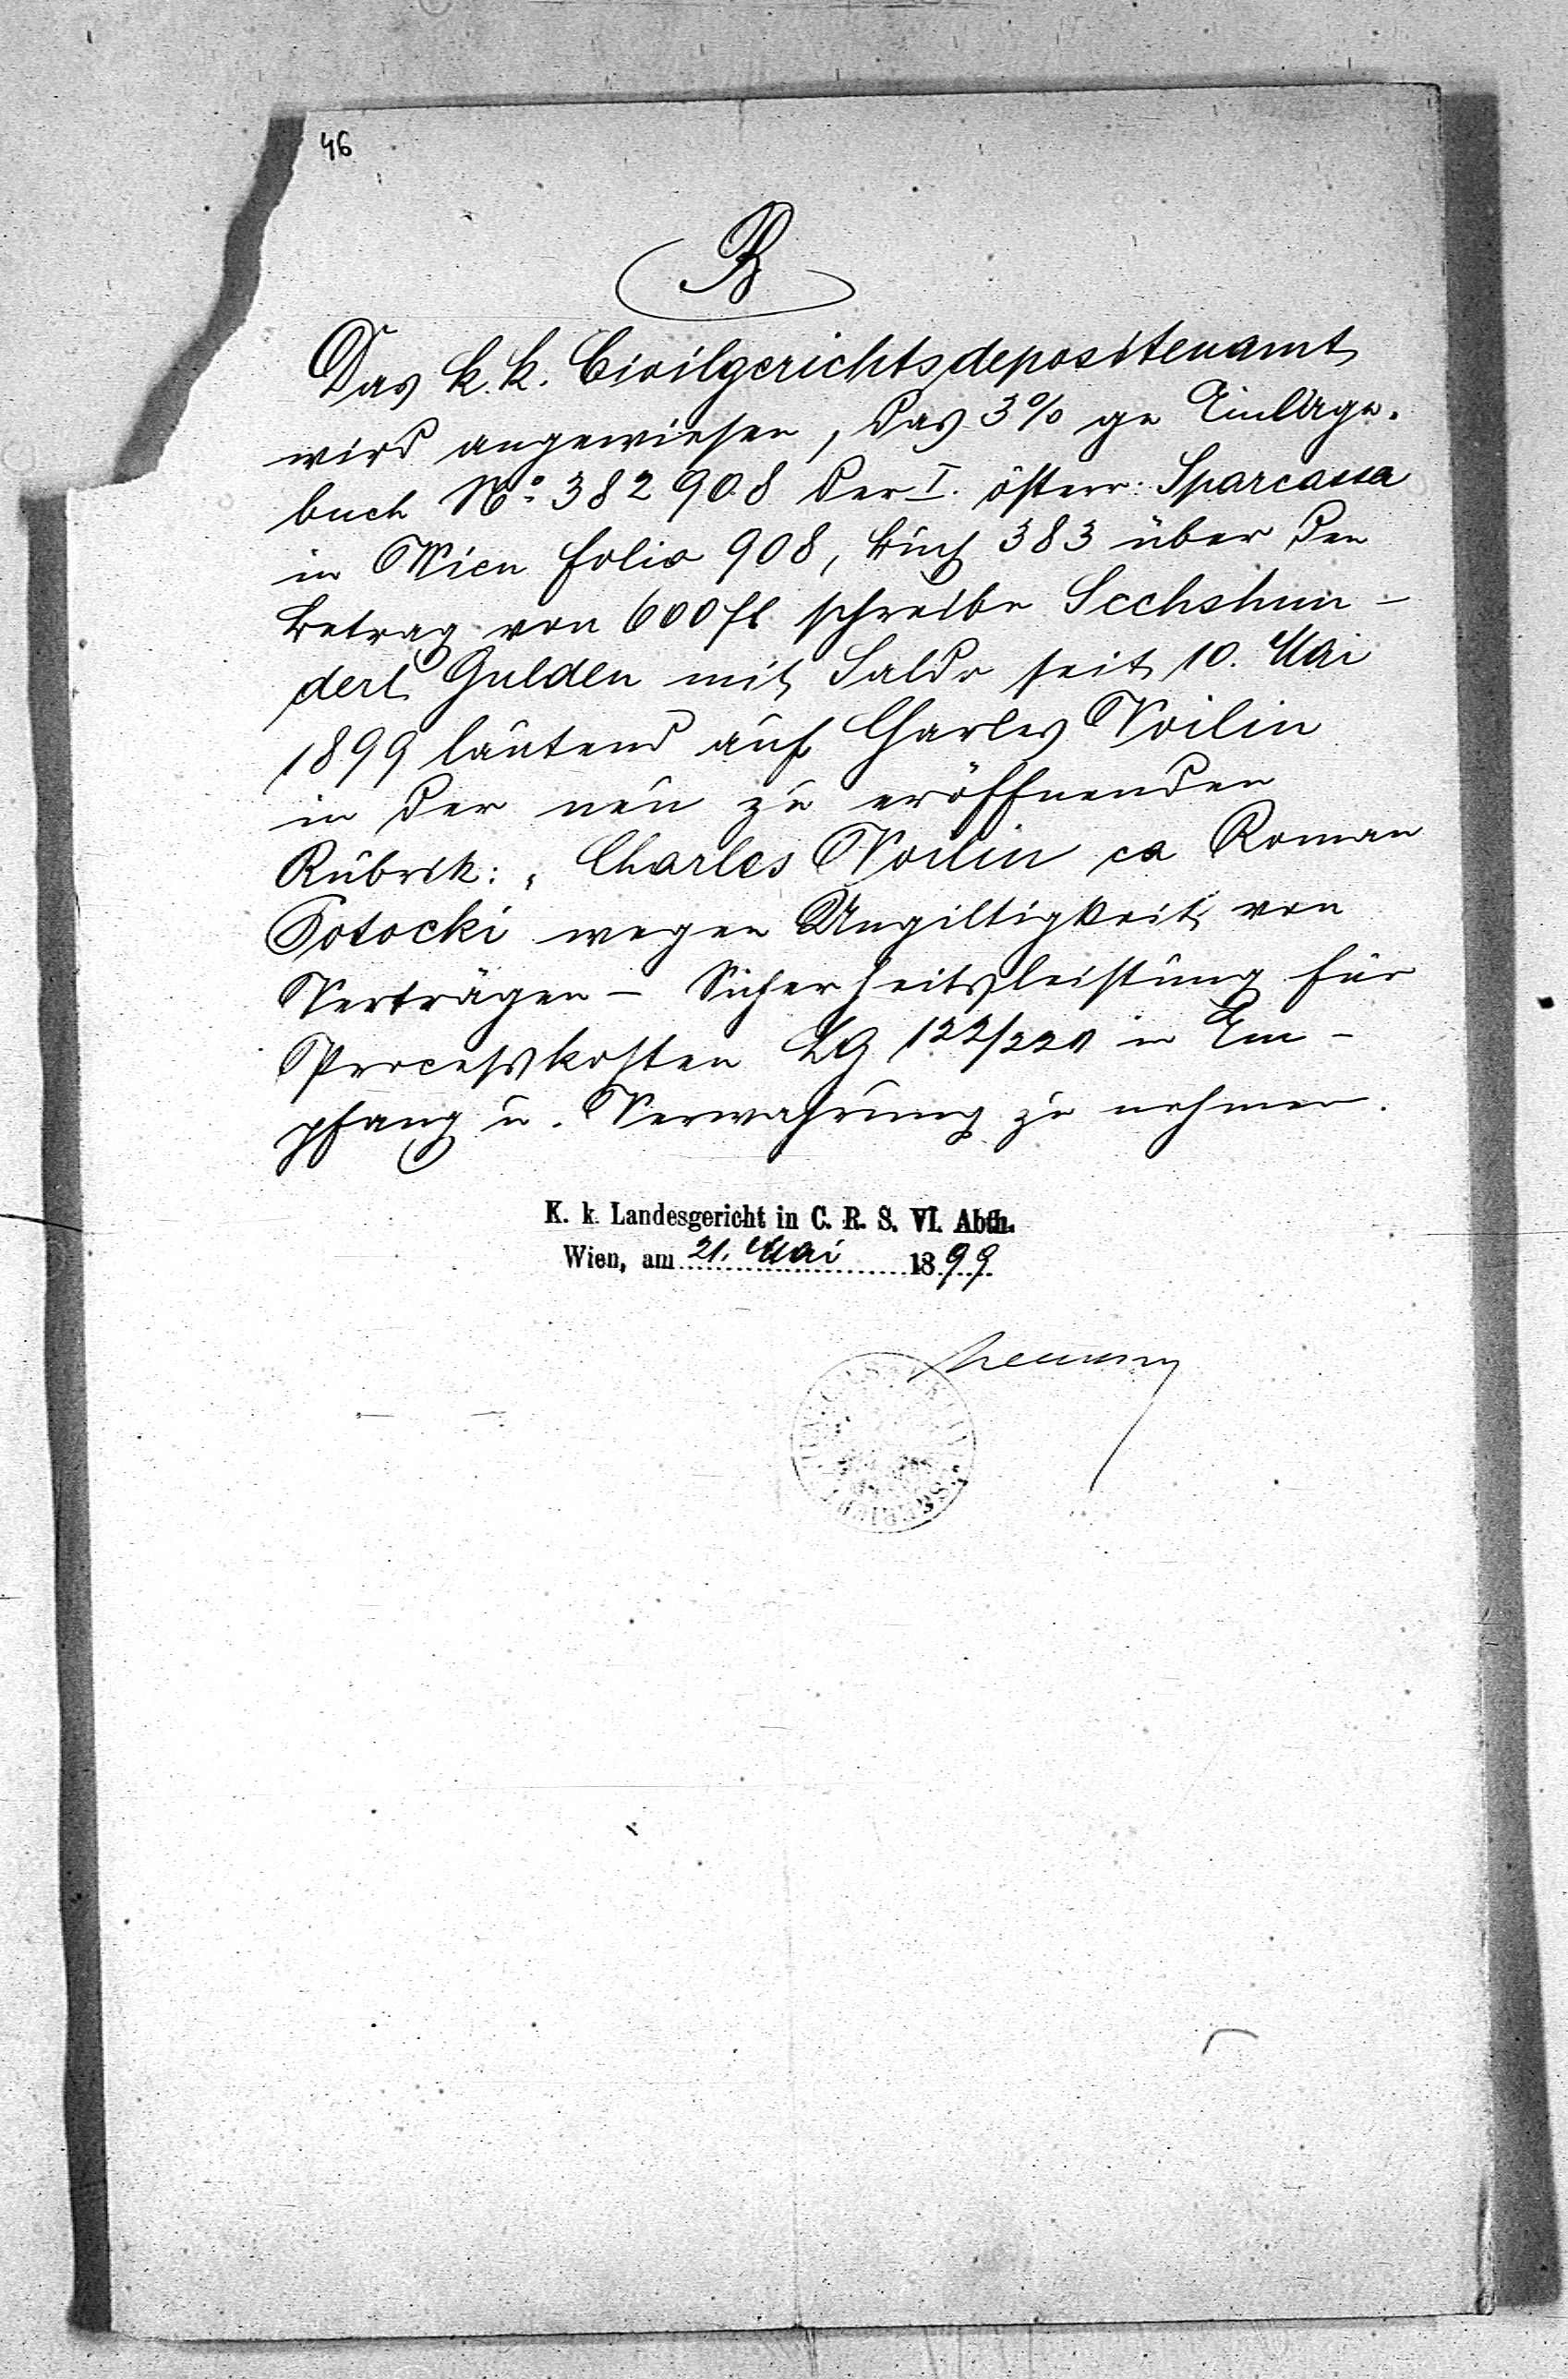 46
B
Das k. k. Civilgerichtsdepositenamt
wird angewiesen, das 3% ge Einlage-
buch No. 382908 der I. österr: Sparcassa
in Wien folio 908, buch 383 über den
Betrag von 600 fl schreibe Sechshun-
dert Gulden mit Saldo seit 10. Mai
1899 lautend auf Charles Voilin
in der neu zu eröffnenden
Rubrik: „ Charles Voilin ca Roman
Potocki wegen Ungiltigkeit von
Verträgen - Sicherheitsleistung für
Processkosten LG 122/220 in Em-
pfang u. Verwahrung zu nehmen.
K. k. Landesgericht in C. R. S. VI. Abth.
Wien, am 21. Mai 1899